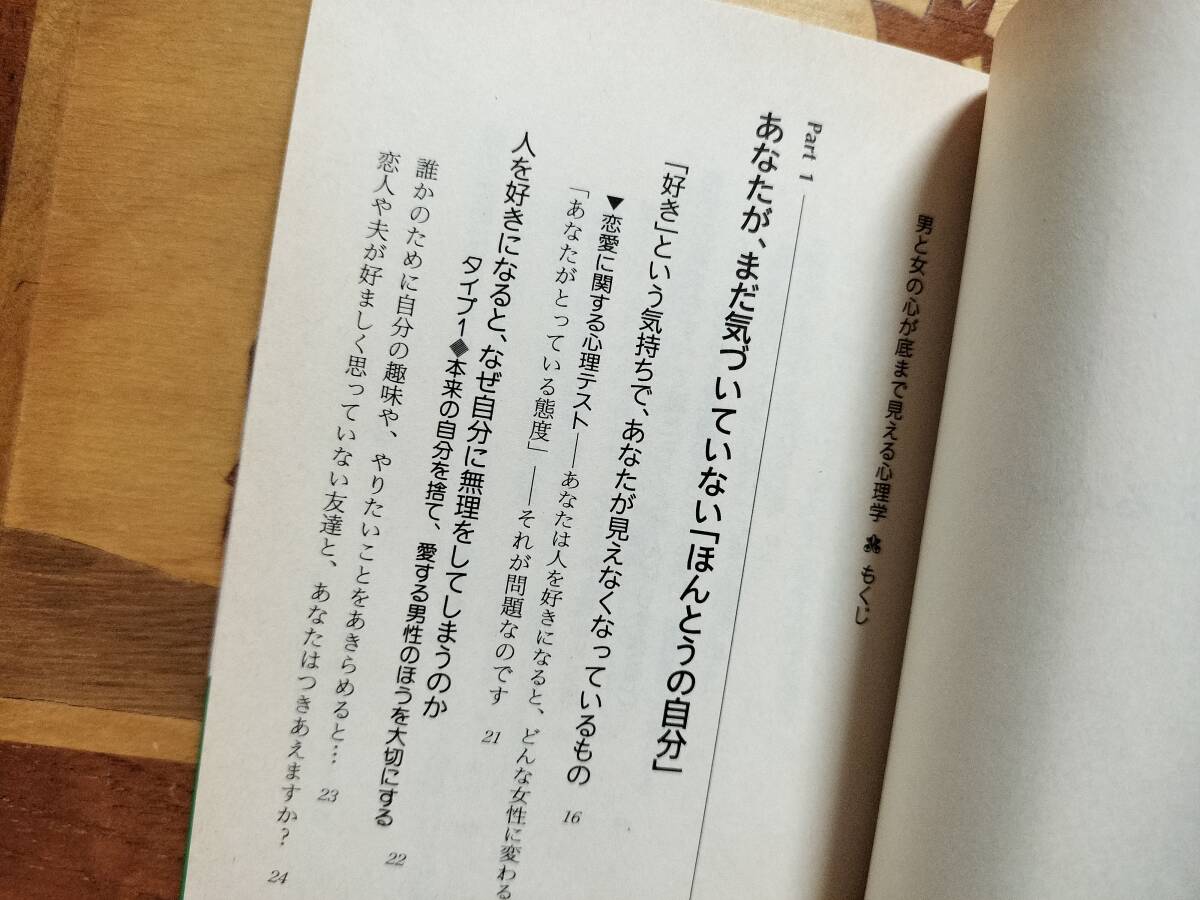 男と女の心が底まで見える心理学 もくじ
Part 1
あなたが、まだ気づいていない「ほんとうの自分」
「好き」という気持ちで、あなたが見えなくなっているもの 16
▼恋愛に関する心理テスト――あなたは人を好きになると、どんな女性に変わる
「あなたがとっている態度」――それが問題なのです 21
人を好きになると、なぜ自分に無理をしてしまうのか
タイプ1◆本来の自分を捨て、愛する男性のほうを大切にする 22
誰かのために自分の趣味や、やりたいことをあきらめると… 23
恋人や夫が好ましく思っていない友達と、あなたはつきあえますか? 24